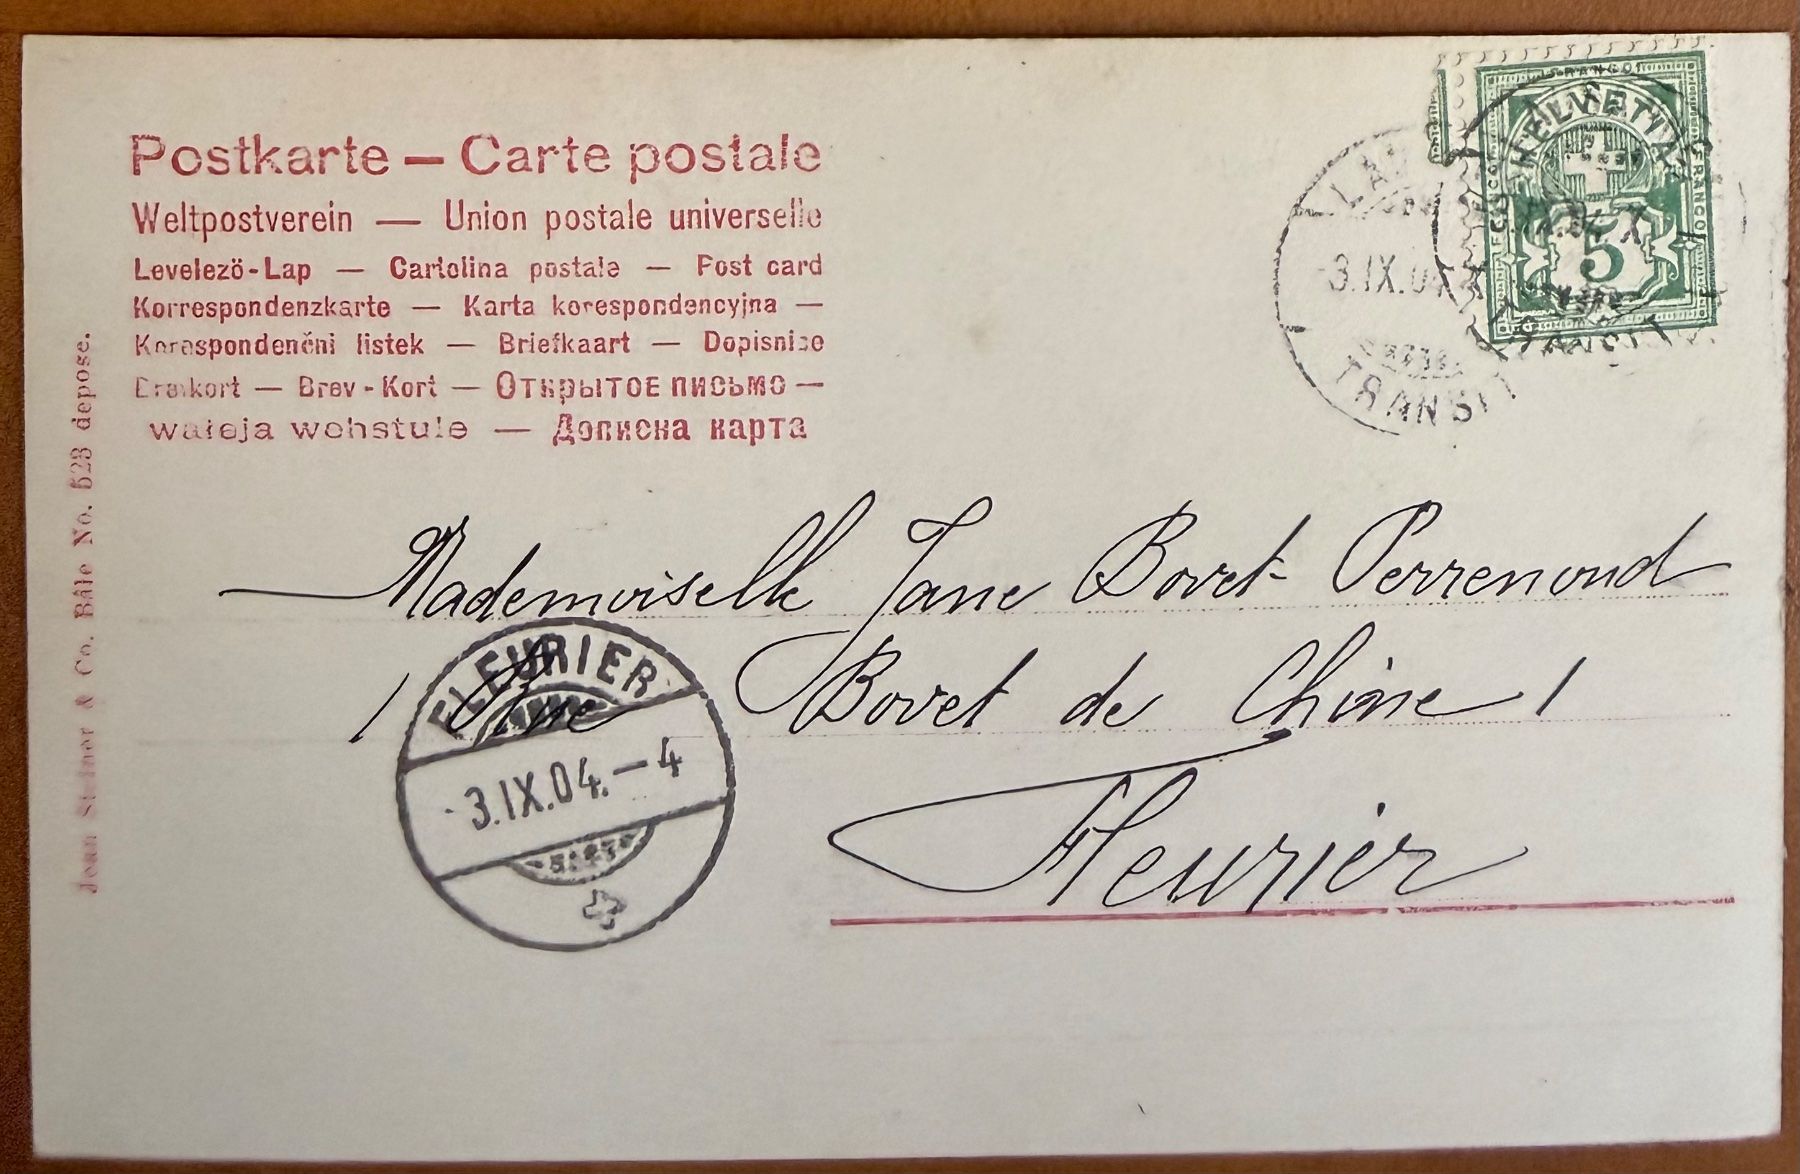 Postkarte — Carte postale
Weltpostverein — Union postale universelle
Levelező-Lap — Cartolina postale — Post card
Korrespondenzkarte — Karta korespondencyjna —
Korespondenčni listek — Briefkaart — Dopisnice
Brevkort — Brev-Kort — Открытое письмо —
waleja wohstule — Дописна карта
Jean Steiner & Co. Bâle No. 523 depose.
FRANCO
HELVETIA
FRANCO
5
3.IX.04
TRANSIT
TRANSIT
Mademoiselle Jane Bovet-Perrenoud
Bovet de Chine
Fleurier
FLEURIER
-3.IX.04.-4